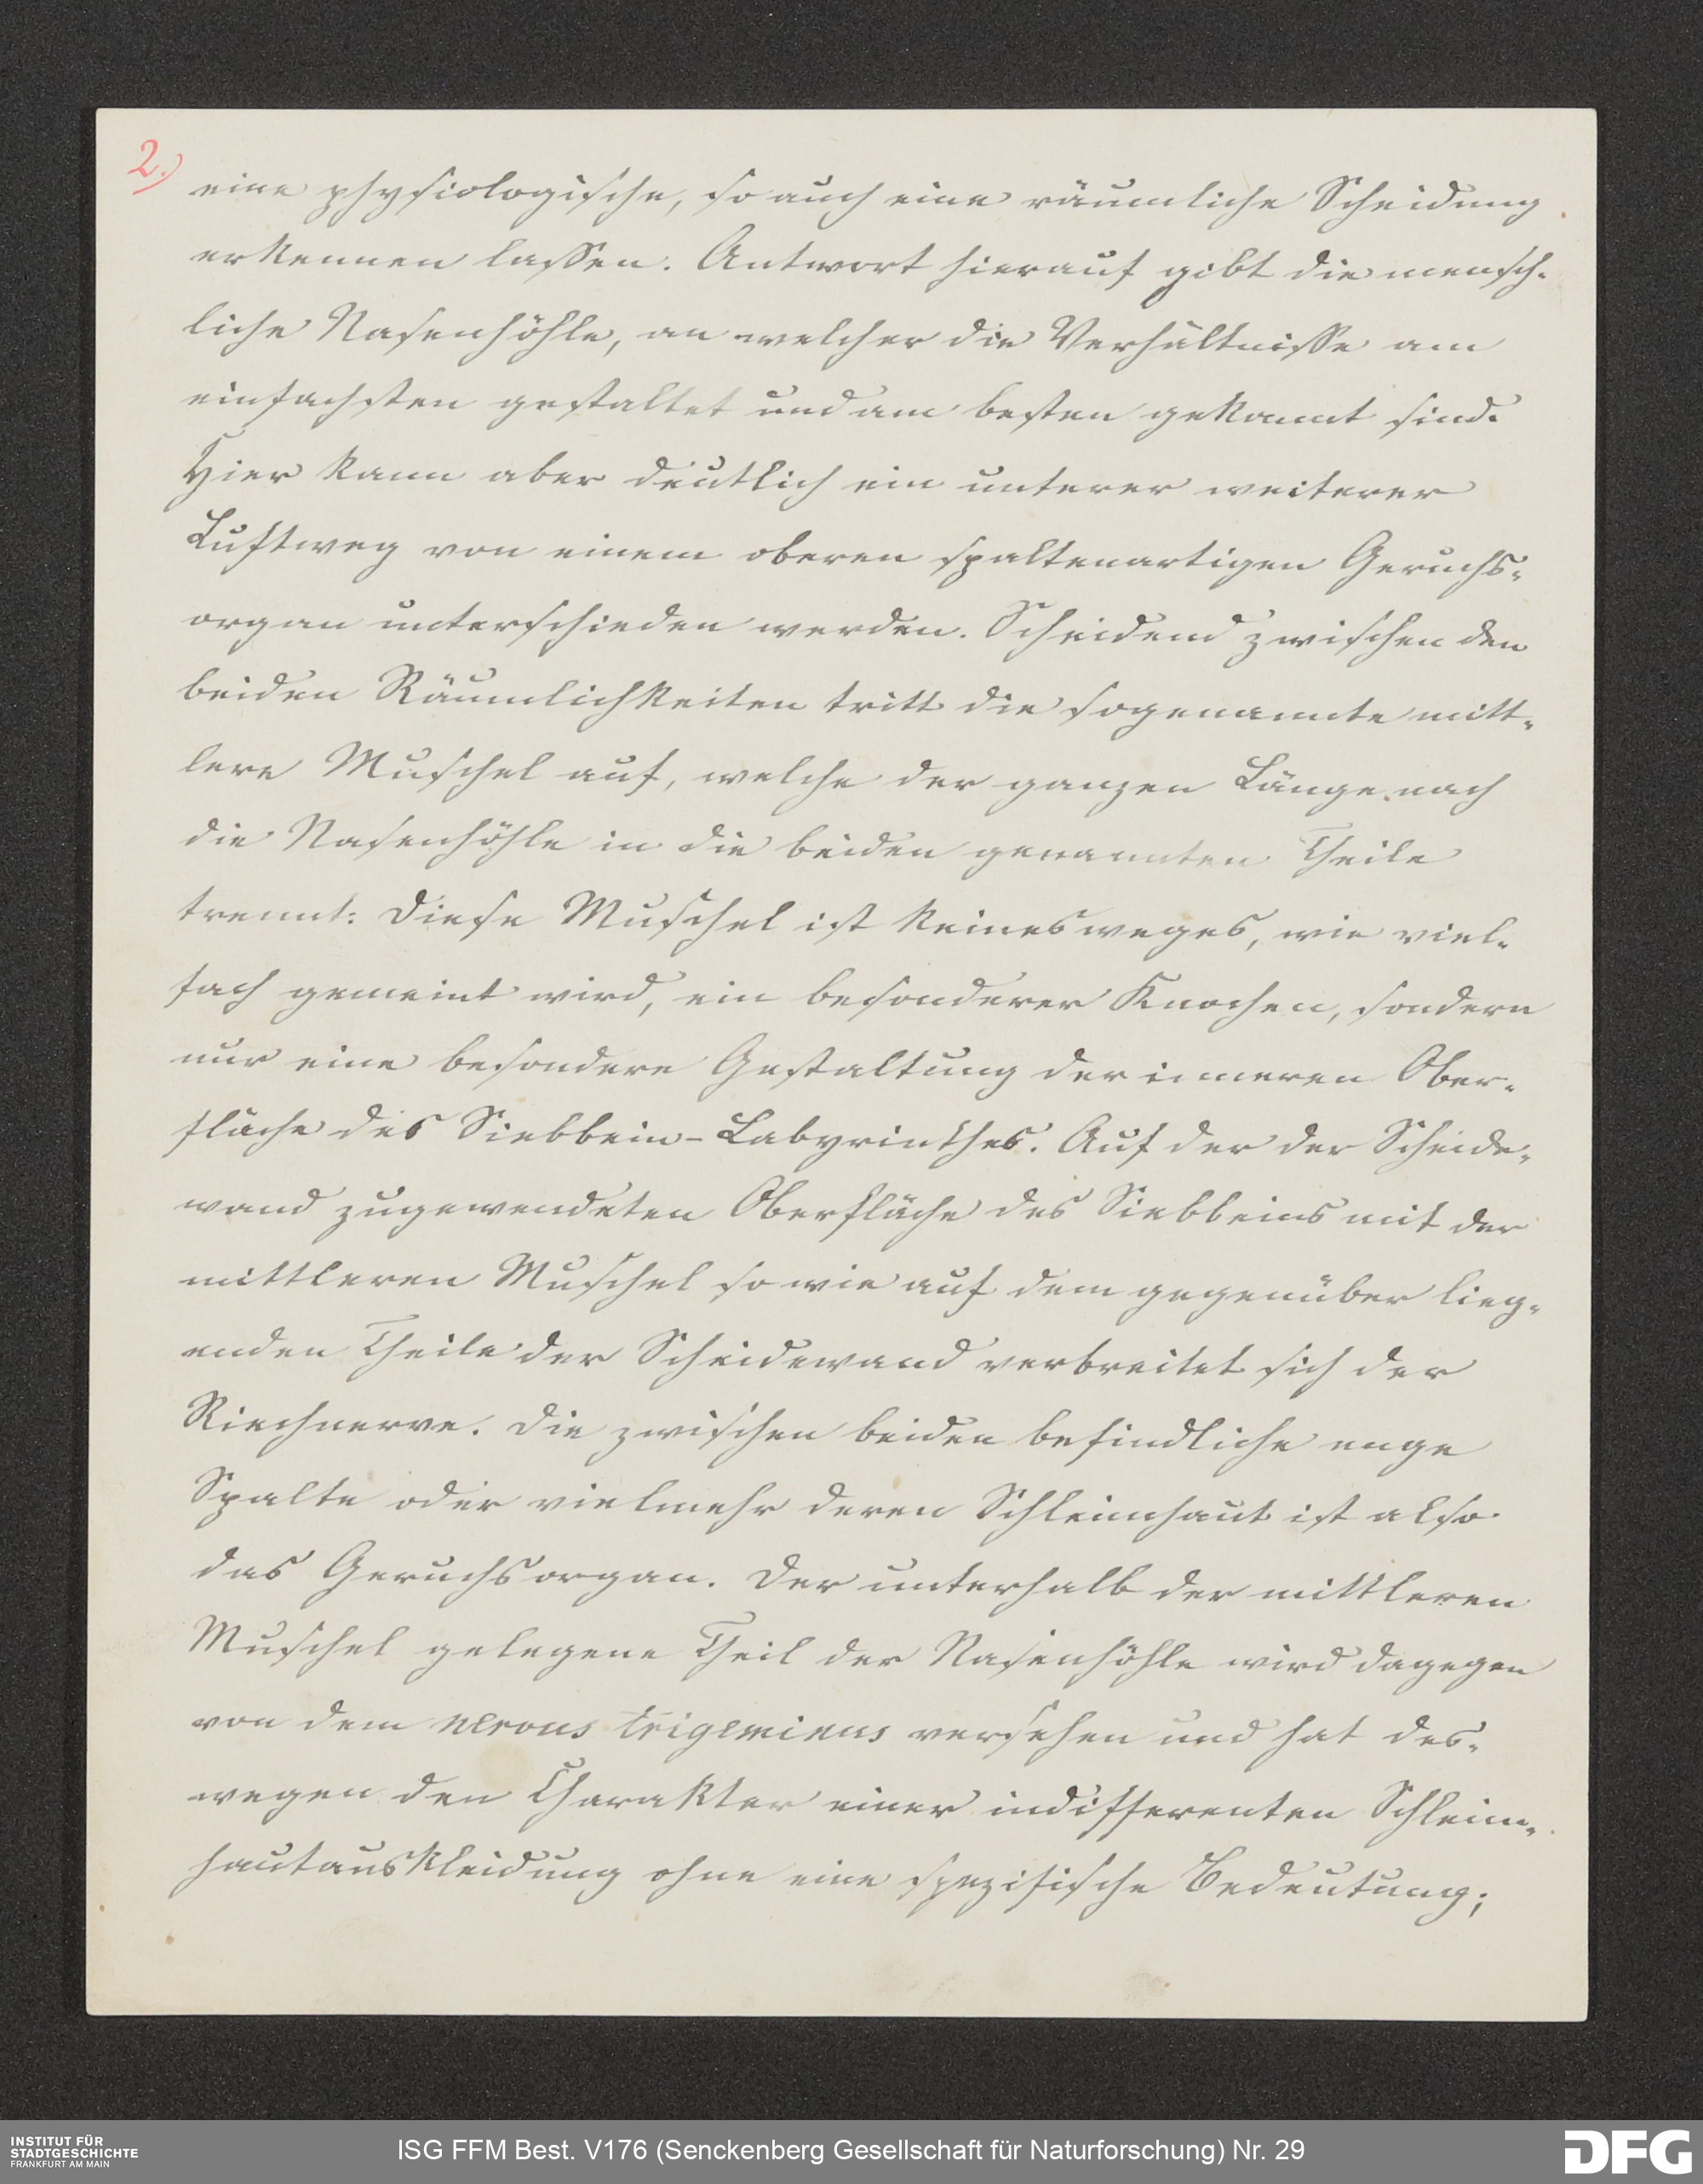 2.)
eine physiologische, so auch eine räumliche Scheidung
erkennen lassen. Antwort hierauf gibt die mensch-
liche Nasenhöhle, an welcher die Verhältnisse am
einfachsten gestaltet und am besten gekannt sind.
Hier kann aber deutlich ein unterer weiterer
Luftweg von einem oberen spaltenartigen Geruchs-
organ unterschieden werden. Scheidend zwischen den
beiden Räumlichkeiten tritt die sogenannte mitt-
lere Muschel auf, welche der ganzen Länge nach
die Nasenhöhle in die beiden genannten Theile
trennt. Diese Muschel ist keinesweges, wie viel-
fach gemeint wird, ein besonderer Knochen, sondern
nur eine besondere Gestaltung der inneren Ober-
fläche des Siebbein-Labyrinthes. Auf der der Scheide-
wand zugewendeten Oberfläche des Siebbeins mit der
mittleren Muschel so wie auf dem gegenüber lieg-
enden Theile der Scheidewand verbreitet sich der
Riechnerve. Die zwischen beiden befindliche enge
Spalte oder vielmehr deren Schleimhaut ist also
das Geruchsorgan. Der unterhalb der mittleren
Muschel gelegene Theil der Nasenhöhle wird dagegen
von dem nervus trigeminus versehen und hat des-
wegen den Charakter einer indifferenten Schleim-
hautauskleidung ohne eine spezifische Bedeutung;
INSTITUT FÜR
STADTGESCHICHTE
FRANKFURT AM MAIN
ISG FFM Best. V176 (Senckenberg Gesellschaft für Naturforschung) Nr. 29
DFG